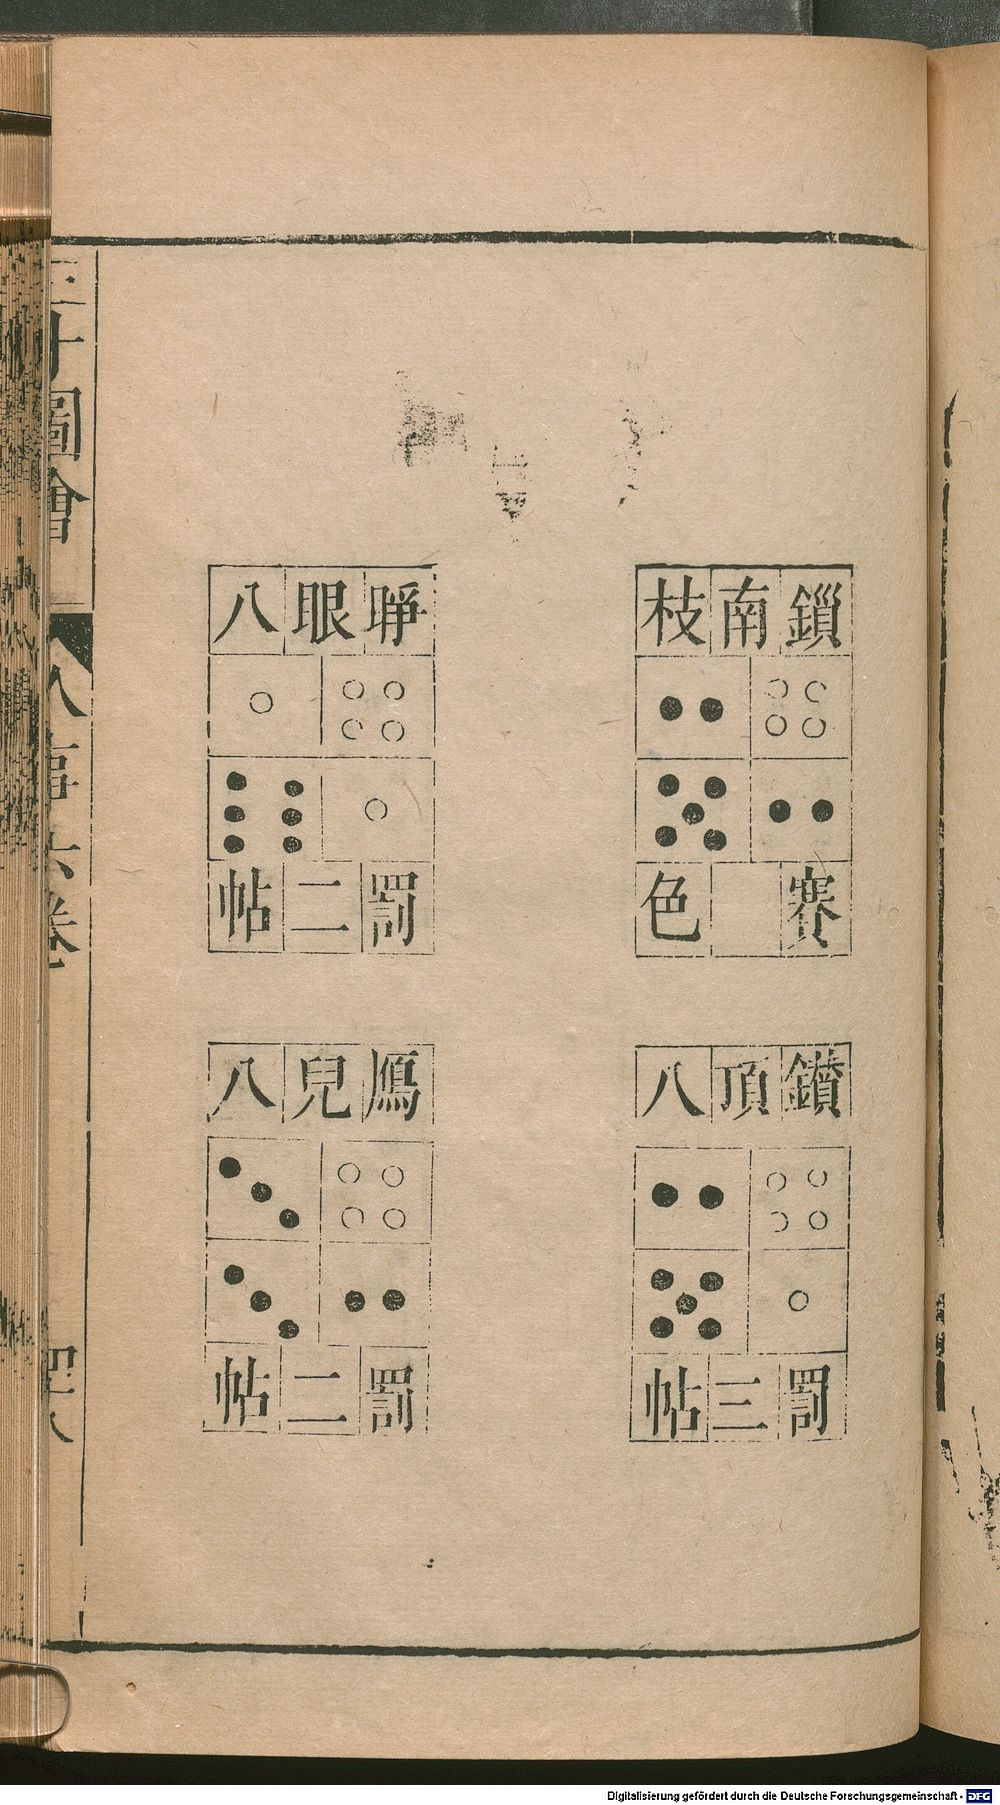 鎻南枝
賽色
鑚頂八
罰三帖
睜眼八
罰二帖
鴈兒八
罰二帖
三才圖會
人事六卷
四十八
Digitalisierung gefördert durch die Deutsche Forschungsgemeinschaft - DFG